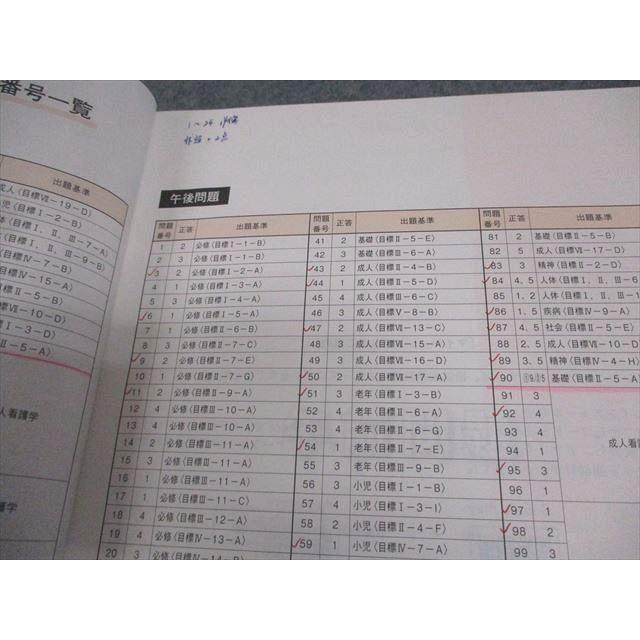 番号一覧
1～24 必修
午後問題
出題基準
成人〈目標Ⅶ－19－D〉
児〈目標Ⅰ－2－B〉
体〈目標Ⅰ，Ⅱ，Ⅲ－7－A〉
Ⅰ，Ⅱ，Ⅲ－9－B〉
Ⅳ－7－B〉
Ⅳ－15－A〉
Ⅱ－5－B〉
Ⅶ－10－D〉
Ⅰ－3－D〉
Ⅱ－5－A〉
人看護学
護学
問題番号 正答 出題基準
1 2 必修〈目標Ⅰ－1－B〉
2 3 必修〈目標Ⅰ－1－B〉
3 2 必修〈目標Ⅰ－2－A〉
4 1 必修〈目標Ⅰ－3－A〉
5 3 必修〈目標Ⅰ－4－A〉
6 1 必修〈目標Ⅰ－5－A〉
7 1 必修〈目標Ⅱ－6－B〉
8 3 必修〈目標Ⅱ－7－C〉
9 2 必修〈目標Ⅱ－7－E〉
10 1 必修〈目標Ⅱ－7－G〉
11 2 必修〈目標Ⅱ－9－A〉
12 4 必修〈目標Ⅲ－10－A〉
13 4 必修〈目標Ⅲ－10－A〉
14 2 必修〈目標Ⅲ－11－A〉
15 3 必修〈目標Ⅲ－11－A〉
16 1 必修〈目標Ⅲ－11－A〉
17 1 必修〈目標Ⅲ－11－C〉
18 4 必修〈目標Ⅲ－12－A〉
19 4 必修〈目標Ⅳ－13－A〉
20 3 必修〈目標Ⅳ－14－B〉
問題番号 正答 出題基準
41 2 基礎〈目標Ⅱ－5－E〉
42 3 基礎〈目標Ⅲ－6－A〉
43 2 成人〈目標Ⅱ－4－B〉
44 1 成人〈目標Ⅱ－5－D〉
45 4 成人〈目標Ⅲ－6－C〉
46 3 成人〈目標Ⅴ－8－B〉
47 2 成人〈目標Ⅶ－13－C〉
48 3 成人〈目標Ⅶ－15－A〉
49 3 成人〈目標Ⅶ－16－D〉
50 2 成人〈目標Ⅶ－17－A〉
51 3 老年〈目標Ⅰ－3－B〉
52 4 老年〈目標Ⅱ－6－A〉
53 4 老年〈目標Ⅱ－6－G〉
54 1 老年〈目標Ⅱ－7－E〉
55 3 老年〈目標Ⅲ－9－B〉
56 3 小児〈目標Ⅰ－1－B〉
57 4 小児〈目標Ⅰ－3－I〉
58 2 小児〈目標Ⅱ－4－F〉
59 1 小児〈目標Ⅳ－7－A〉
問題番号 正答 出題基準
81 2 基礎〈目標Ⅱ－5－B〉
82 5 成人〈目標Ⅶ－17－D〉
83 3 精神〈目標Ⅱ－2－D〉
84 4，5 人体〈目標Ⅰ，Ⅱ，Ⅲ－6
85 1，2 人体〈目標Ⅰ，Ⅱ，Ⅲ
86 1，5 疾病〈目標Ⅳ－9－A〉
87 4，5 社会〈目標Ⅱ－5－E〉
88 2，5 成人〈目標Ⅶ－10－D
89 3，5 精神〈目標Ⅳ－4－H〉
90 ①9，②5 基礎〈目標Ⅱ－5－A〉
91 3
92 4
93 4
94 1
95 3
96 1
97 1
98 2
99 3
成人看護